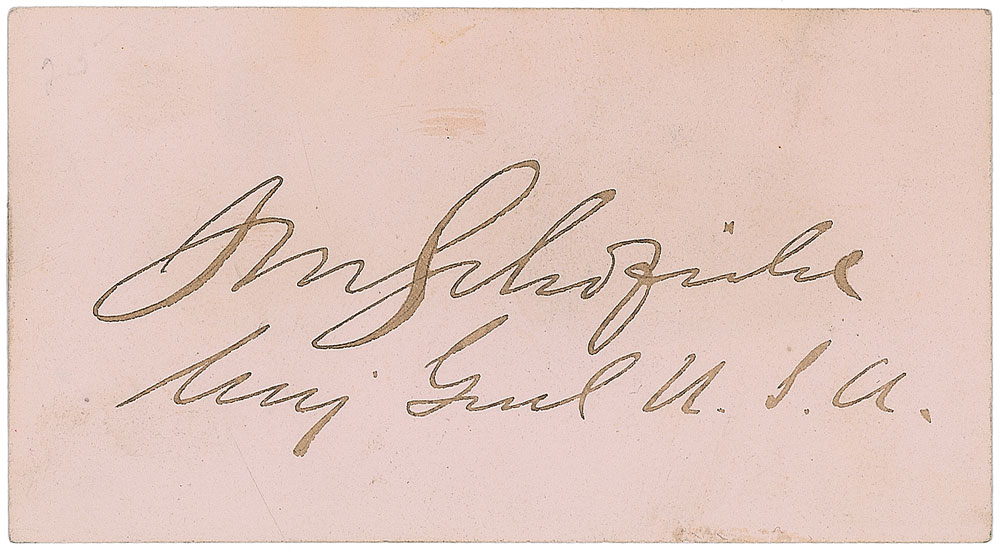 JM Schofield
Maj Genl U. S. A.